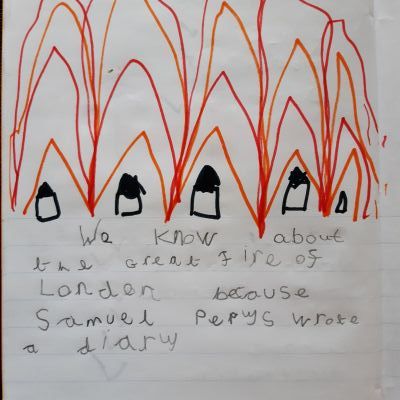 We know about
the great fire of
London because
Samuel Pepys wrote
a diary